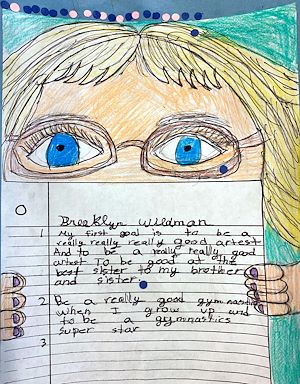 Breeklyn Wildman
1 My first goal is to be a
really really really good artest
And to be a really really good
artest To be good at the
best sister to my brother
and sister.
2 Be a really good gymnastic
when I grow up and
to be a gymnastics
super star
3